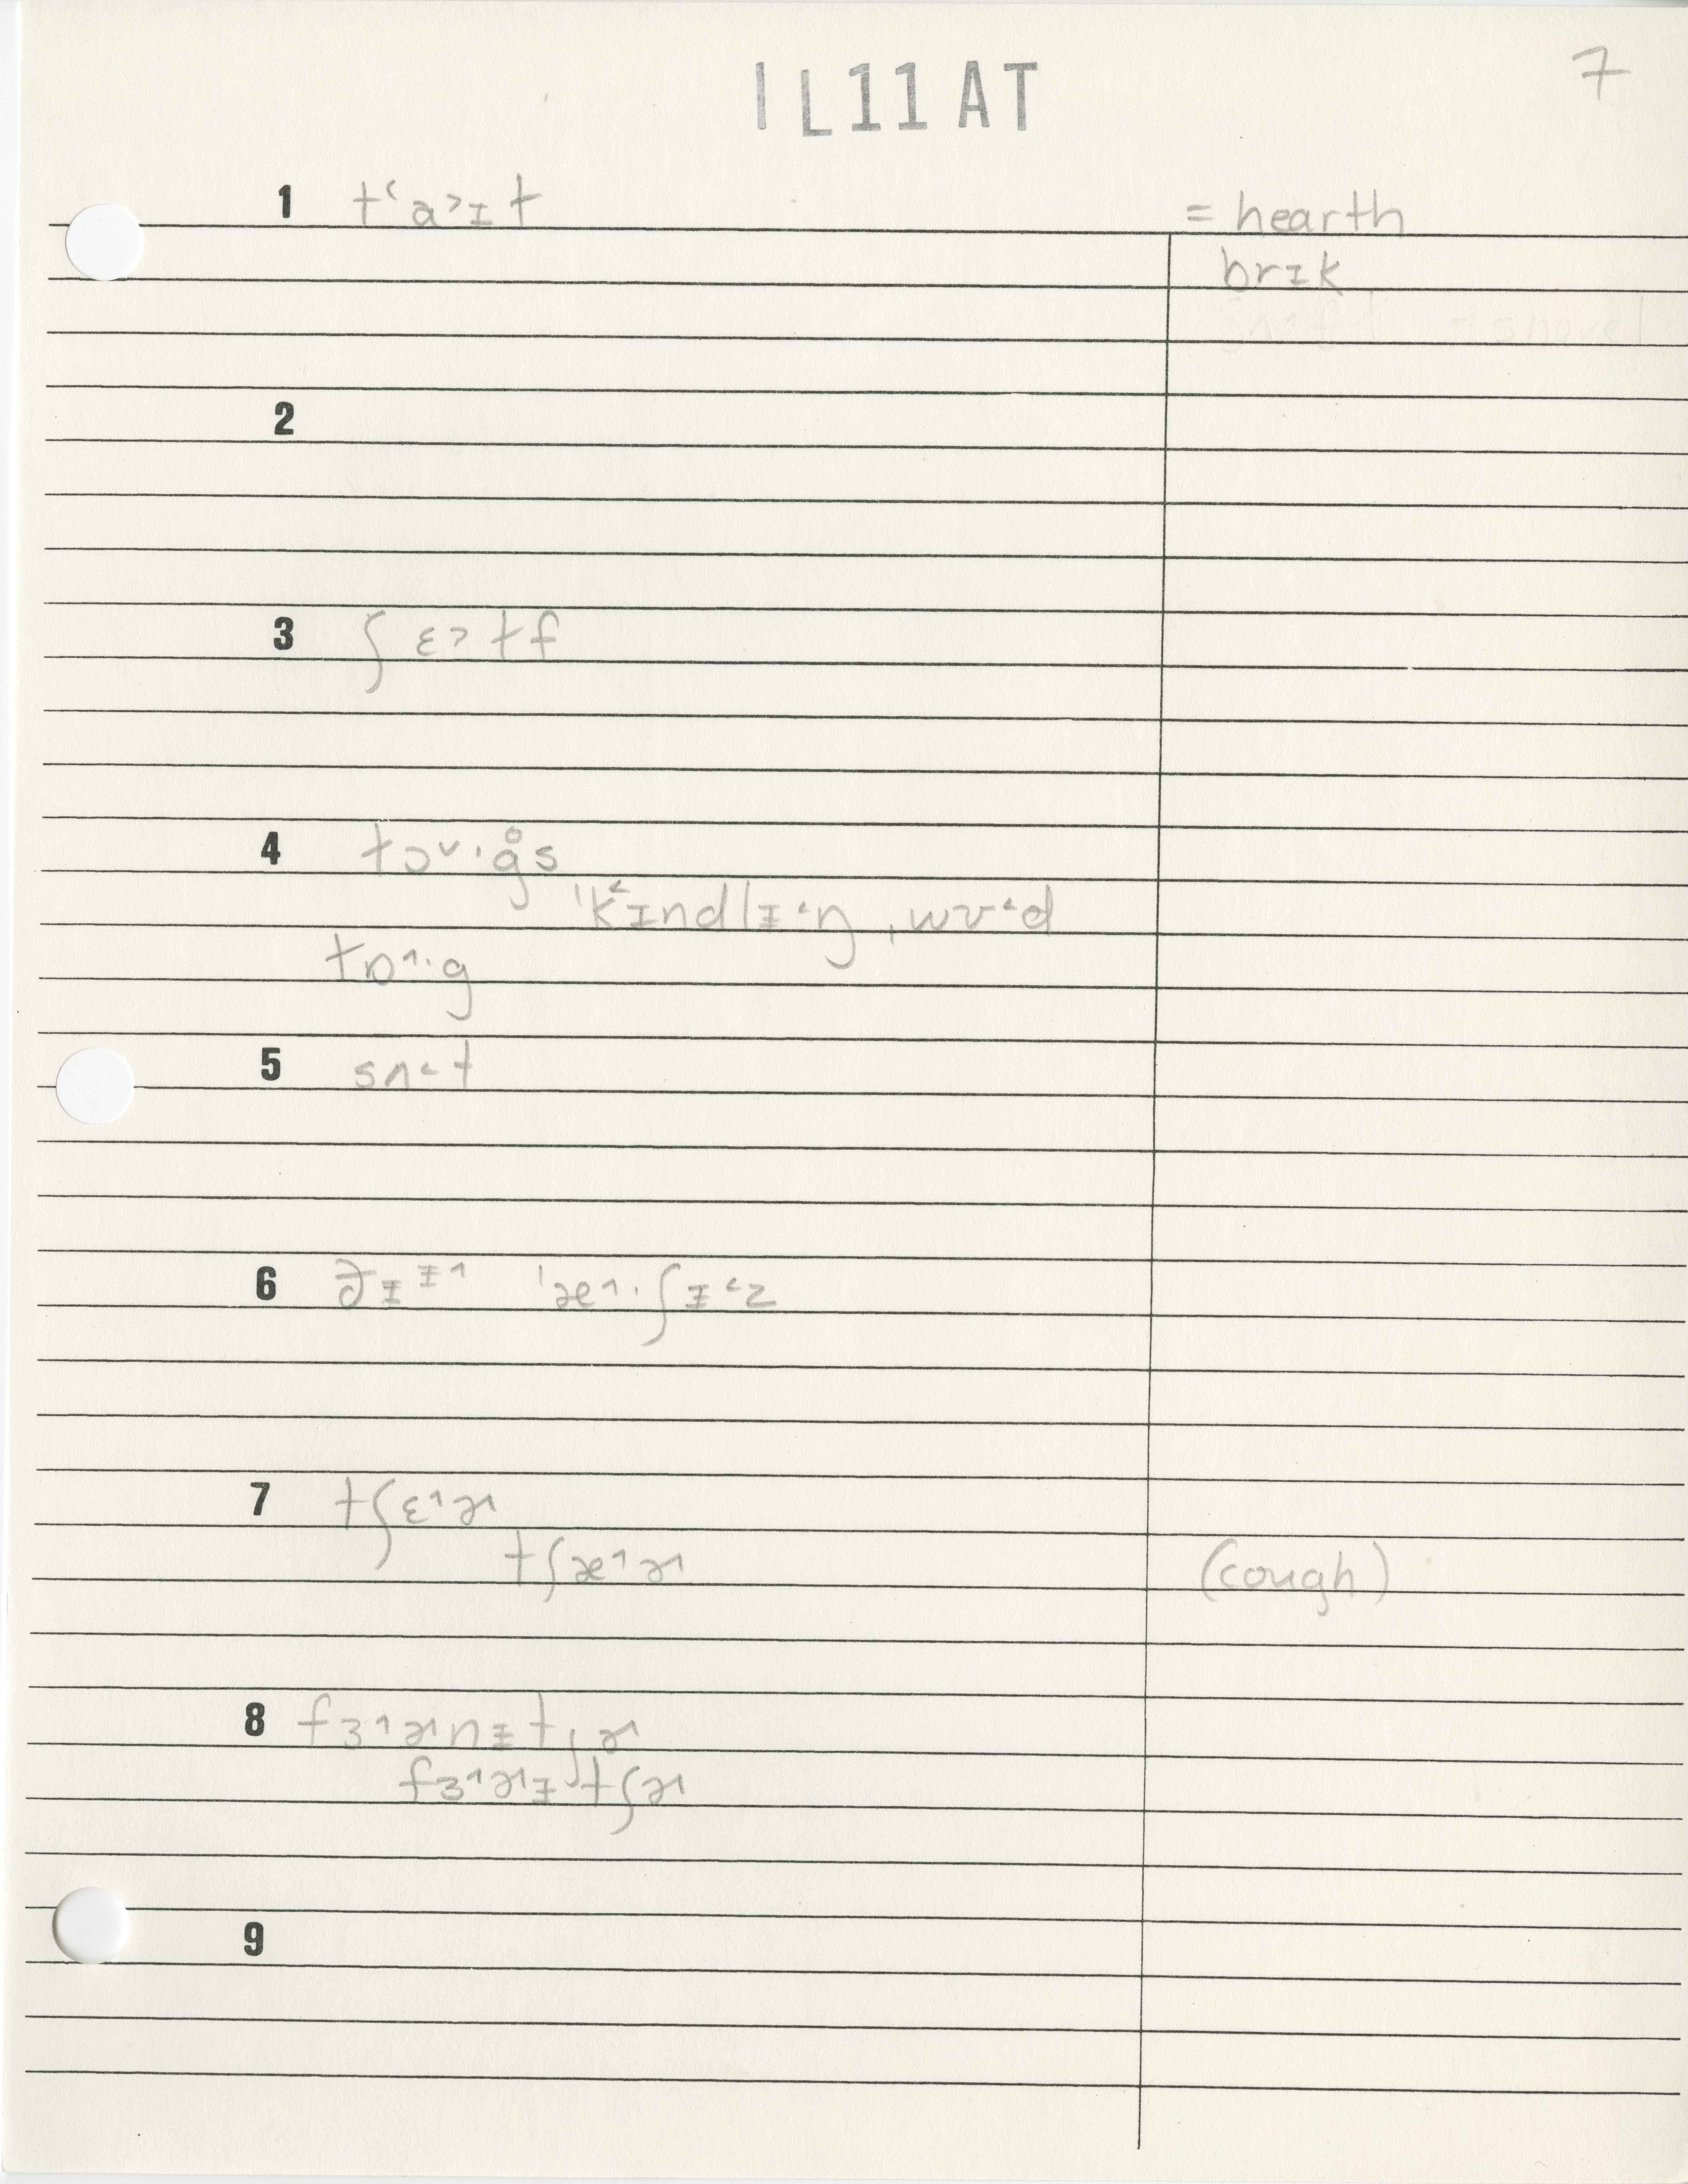 IL11AT
7
1 t‘a˃ɪt = hearth
brɪk
2
3 ʃɛ˃ɫf
4 ɫɔ˅·g̊s
ˈk˂ɪndlɪ˂ŋ ˌwʊ˂d
ɫɒ˄·g
5 sʌ˂t
6 ðɪᵻ˄ ˈæ˄·ʃᵻ˂z
7 tʃɛ˄ɚ
tʃæ˄ɚ (cough)
8 fɜ˄ɚnᵻtʃɚ
fɜ˄ɚᵻtʃɚ
9